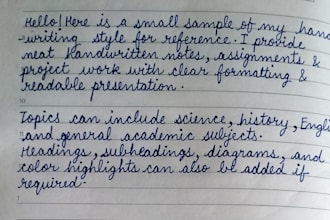 Hello! Here is a small sample of my hand
writing style for reference. I provide
neat handwritten notes, assignments &
project work with clear formatting &
readable presentation.
Topics can include science, history, Engli
and general academic subjects.
Headings, subheadings, diagrams, and
color highlights can also be added if
required.